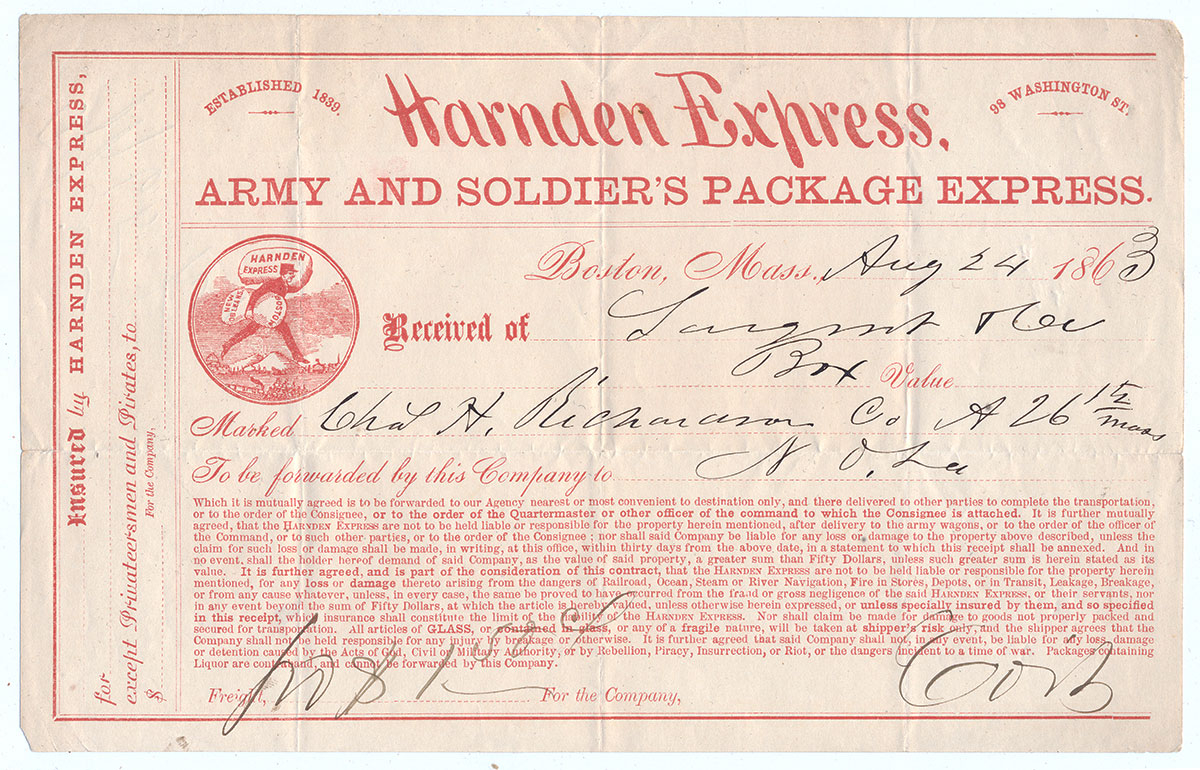 ESTABLISHED 1839.
Harnden Express.
98 WASHINGTON ST.
ARMY AND SOLDIER'S PACKAGE EXPRESS.
Insured by HARNDEN EXPRESS,
for
except Privateersmen and Pirates, to
$
For the Company,
HARNDEN
EXPRESS
NEW ORLEANS
BOSTON
Boston, Mass., Aug 24 1863
Received of Sargent & Co
Box Value
Marked Chas H. Richardson Co A 26 mass
To be forwarded by this Company to N O, La
Which it is mutually agreed is to be forwarded to our Agency nearest or most convenient to destination only, and there delivered to other parties to complete the transportation,
or to the order of the Consignee, or to the order of the Quartermaster or other officer of the command to which the Consignee is attached. It is further mutually
agreed, that the HARNDEN EXPRESS are not to be held liable or responsible for the property herein mentioned, after delivery to the army wagons, or to the order of the officer of
the Command, or to such other parties, or to the order of the Consignee; nor shall said Company be liable for any loss or damage to the property above described, unless the
claim for such loss or damage shall be made, in writing, at this office, within thirty days from the above date, in a statement to which this receipt shall be annexed. And in
no event shall the holder hereof demand of said Company, as the value of said property, a greater sum than Fifty Dollars, unless such greater sum is herein stated as its
value. It is further agreed, and is part of the consideration of this contract, that the HARNDEN EXPRESS are not to be held liable or responsible for the property herein
mentioned, for any loss or damage thereto arising from the dangers of Railroad, Ocean, Steam or River Navigation, Fire in Stores, Depots, or in Transit, Leakage, Breakage,
or from any cause whatever, unless, in every case, the same be proved to have occurred from the fraud or gross negligence of the said HARNDEN EXPRESS, or their servants, nor
in any event beyond the sum of Fifty Dollars, at which the article is hereby valued, unless otherwise herein expressed, or unless specially insured by them, and so specified
in this receipt, which insurance shall constitute the limit of the liability of the HARNDEN EXPRESS. Nor shall claim be made for damage to goods not properly packed and
secured for transportation. All articles of GLASS, or contained in glass, or any of a fragile nature, will be taken at shipper's risk only, and the shipper agrees that the
Company shall not be held responsible for any injury by breakage or otherwise. It is further agreed that said Company shall not, in any event, be liable for any loss, damage
or detention caused by the Acts of God, Civil or Military Authority, or by Rebellion, Piracy, Insurrection, or Riot, or the dangers incident to a time of war. Packages containing
Liquor are contraband, and cannot be forwarded by this Company.
Freight, For the Company,